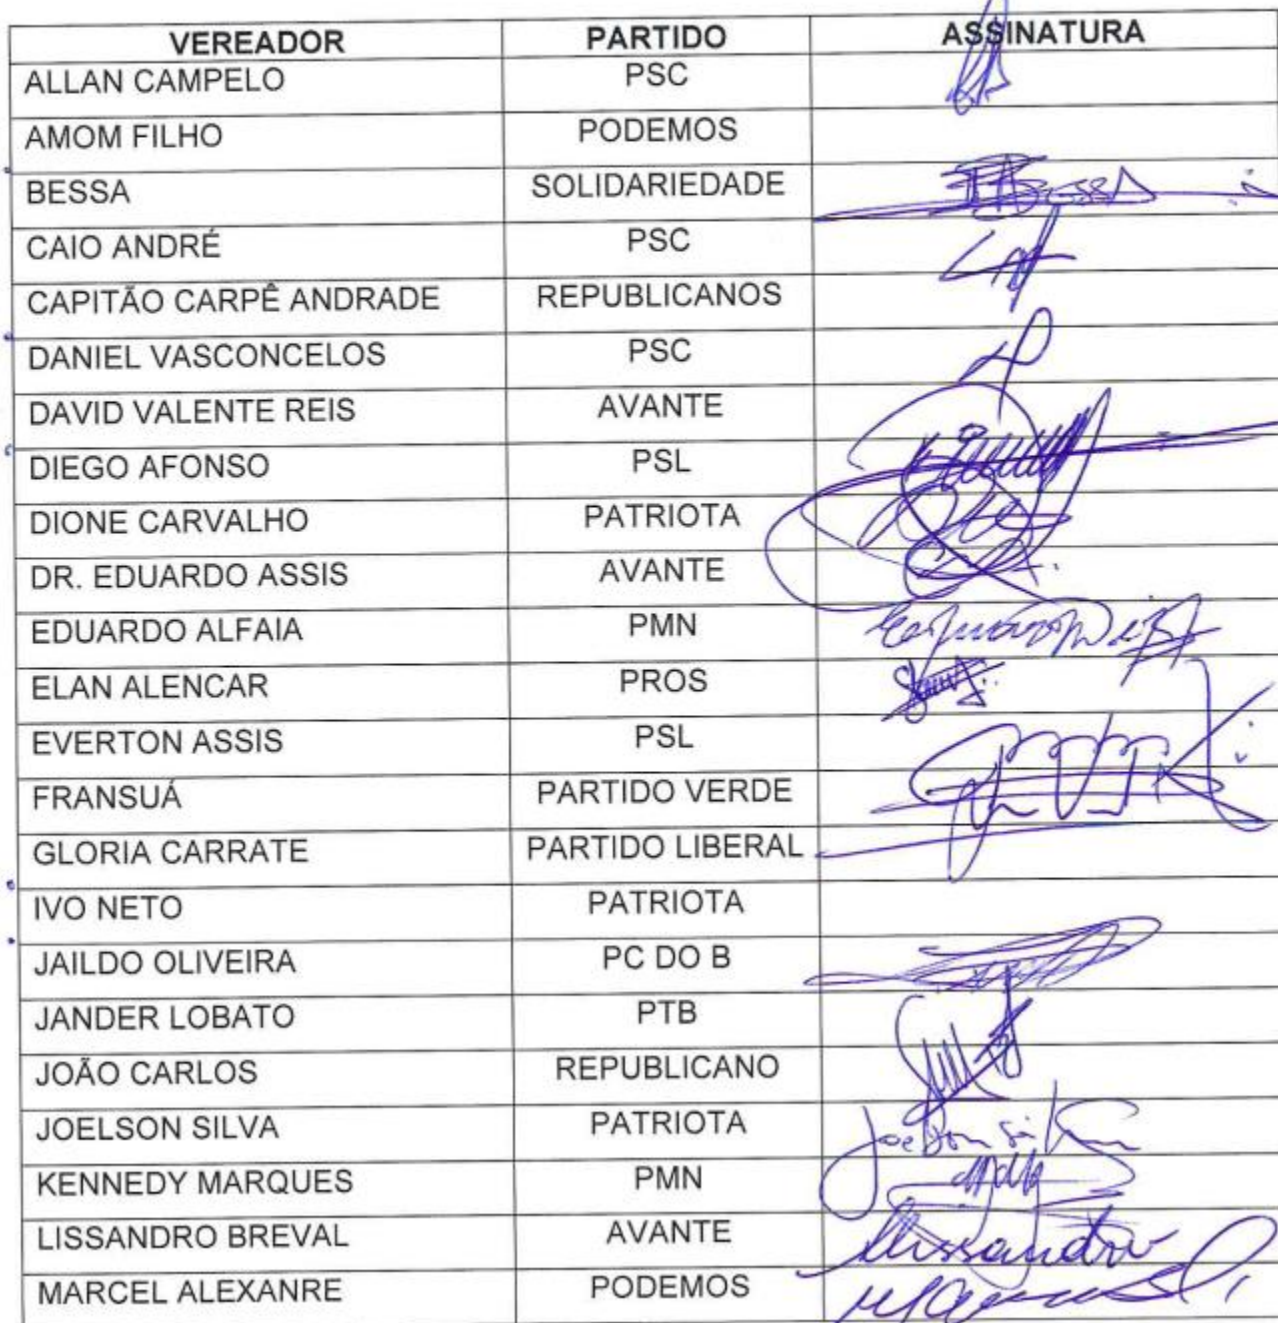 VEREADOR PARTIDO ASSINATURA
ALLAN CAMPELO PSC
AMOM FILHO PODEMOS
BESSA SOLIDARIEDADE Bessa
CAIO ANDRÉ PSC
CAPITÃO CARPÊ ANDRADE REPUBLICANOS
DANIEL VASCONCELOS PSC
DAVID VALENTE REIS AVANTE
DIEGO AFONSO PSL
DIONE CARVALHO PATRIOTA
DR. EDUARDO ASSIS AVANTE
EDUARDO ALFAIA PMN
ELAN ALENCAR PROS
EVERTON ASSIS PSL
FRANSUÁ PARTIDO VERDE
GLORIA CARRATE PARTIDO LIBERAL
IVO NETO PATRIOTA
JAILDO OLIVEIRA PC DO B
JANDER LOBATO PTB
JOÃO CARLOS REPUBLICANO
JOELSON SILVA PATRIOTA Joelson Silva
KENNEDY MARQUES PMN
LISSANDRO BREVAL AVANTE Lissandro
MARCEL ALEXANRE PODEMOS